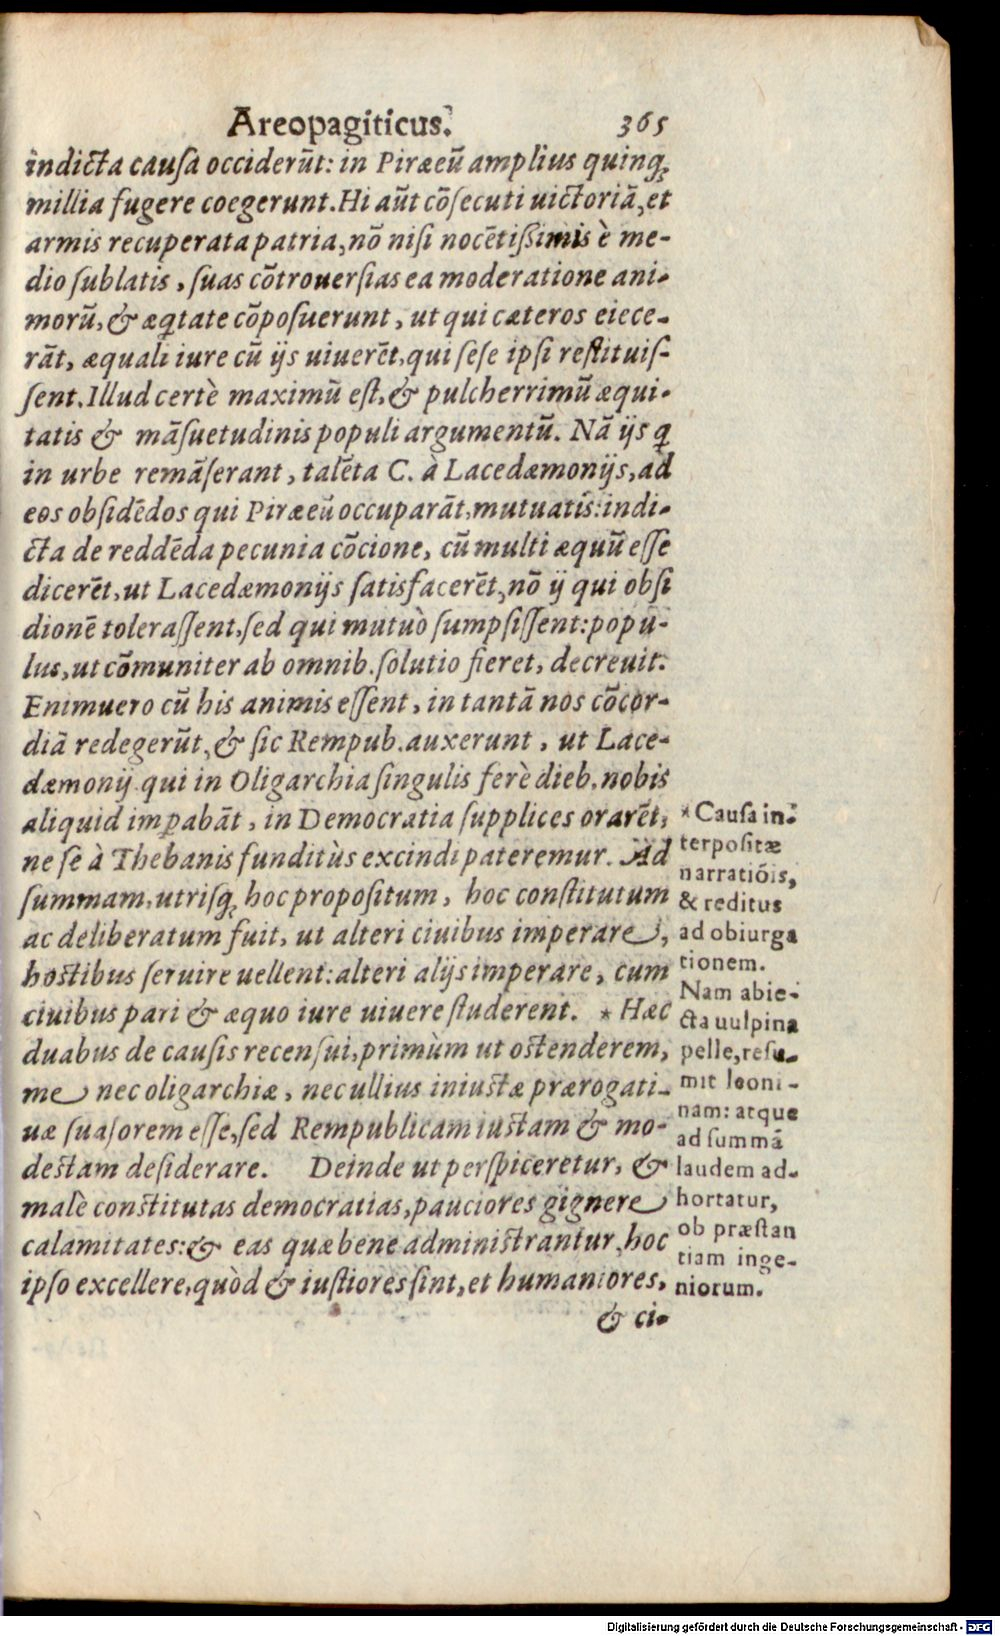 Areopagiticus. 365
indicta cauſa occiderūt: in Piræeū amplius quinq;
millia fugere coegerunt. Hi aūt cōſecuti uictoriā, et
armis recuperata patria, nō niſi nocētiſsimis è me-
dio ſublatis, ſuas cōtrouerſias ea moderatione ani-
morū, & æqtate cōpoſuerunt, ut qui cæteros eiece-
rāt, æquali iure cū ijs uiuerēt, qui ſeſe ipſi reſtituiſ-
ſent. Illud certè maximū eſt, & pulcherrimū æqui-
tatis & māſuetudinis populi argumentū. Nā ijs q
in urbe remāſerant, talēta C. à Lacedæmonijs, ad
eos obſidēdos qui Piræeū occuparāt, mutuatis: indi-
cta de reddēda pecunia cōcione, cū multi æquū eſſe
dicerēt, ut Lacedæmonijs ſatisfacerēt, nō ij qui obſi
dionē toleraſſent, ſed qui mutuò ſumpſiſſent: popu-
lus, ut cōmuniter ab omnib. ſolutio fieret, decreuit.
Enimuero cū his animis eſſent, in tantā nos cōcor-
diā redegerūt, & ſic Rempub. auxerunt, ut Lace-
dæmonij qui in Oligarchia ſingulis ferè dieb. nobis
aliquid impabāt, in Democratia ſupplices orarēt,
ne ſe à Thebanis funditùs excindi pateremur. Ad
ſummam, utriſq; hoc propoſitum, hoc conſtitutum
ac deliberatum fuit, ut alteri ciuibus imperare,
hoſtibus ſeruire uellent: alteri alijs imperare, cum
ciuibus pari & æquo iure uiuere ſtuderent. * Hæc
duabus de cauſis recenſui, primùm ut oſtenderem,
me nec oligarchiæ, nec ullius iniuſtæ prærogati-
uæ ſuaſorem eſſe, ſed Rempublicam iuſtam & mo-
deſtam deſiderare. Deinde ut perſpiceretur, &
malè conſtitutas democratias, pauciores gignere
calamitates: & eas quæ bene adminiſtrantur, hoc
ipſo excellere, quòd & iuſtiores ſint, et humaniores,
& ci-
* Cauſa in-
terpoſitæ
narratiōis,
& reditus
ad obiurga
tionem.
Nam abie-
cta uulpina
pelle, reſu-
mit leoni-
nam: atque
ad ſummā
laudem ad-
hortatur,
ob præſtan
tiam inge-
niorum.
Digitalisierung gefördert durch die Deutsche Forschungsgemeinschaft - DFG